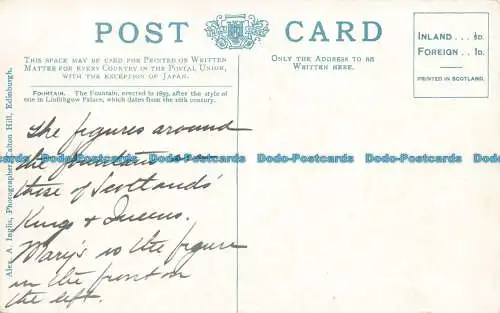 POST CARD
THIS SPACE MAY BE USED FOR PRINTED OR WRITTEN
MATTER FOR EVERY COUNTRY IN THE POSTAL UNION,
WITH THE EXCEPTION OF JAPAN.
ONLY THE ADDRESS TO BE
WRITTEN HERE.
INLAND ... ½D.
FOREIGN .. 1D.
PRINTED IN SCOTLAND.
FOUNTAIN. The Fountain, erected in 1859, after the style of
one in Linlithgow Palace, which dates from the 16th century.
Alex. A. Inglis, Photographer, Calton Hill, Edinburgh.
The figures around
the fountain are
those of Scotlands'
Kings & Queens.
Mary's is the figure
in the front on
the left.
Dodo-Postcards Dodo-Postcards Dodo-Postcards Dodo-Postcards